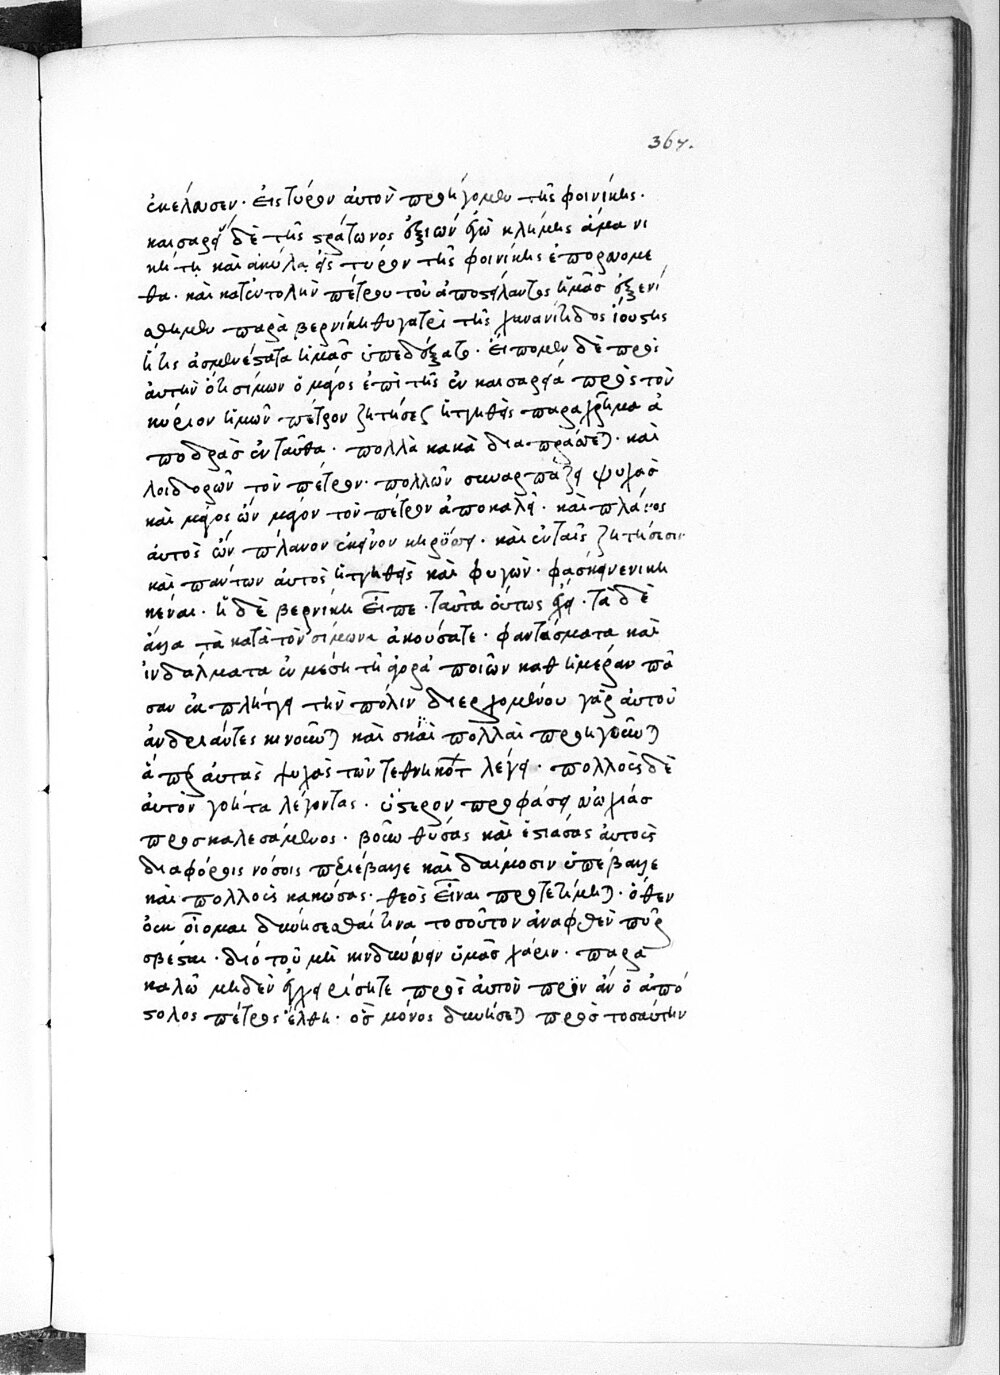 367.
ἐκέλευσεν· εἰς τύρον αὐτὸν προηγόμην τῆς φοινίκης·
καισαρείας δὲ τῆς στράτωνος ἐξιὼν ἐγὼ κλήμης ἅμα νι
κήτη καὶ ἀκύλα εἰς τύρον τῆς φοινίκης ἐπορευομε
θα· καὶ κατ' ἐντολὴν πέτρου τοῦ ἀποστείλαντος ἡμᾶς ἐξενί
σθημεν παρὰ βερνίκη θυγατρὶ τῆς χανανίτιδος ἰούστης
ἥτις ἀσμενέστατα ἡμᾶς ὑπεδέξατο· εἴπομεν δὲ πρὸς
αὐτὴν ὅτι σίμων ὁ μάγος ἐπὶ τῆς ἐν καισαρεία πρὸς τὸν
κύριον ἡμῶν πέτρον ζητήσεως ἡττηθεὶς παραχρῆμα ἀ
ποδρὰς ἐνταῦθα· πολλὰ κακὰ διαπράττεται· καὶ
λοιδορῶν τὸν πέτρον· πολλῶν συναρπάζει ψυχὰς
καὶ μάγος ὢν μάγον τὸν πέτρον ἀποκαλεῖ· καὶ πλάνος
αὐτὸς ὢν πλάνον ἐκεῖνον κηρύσσει· καὶ ἐν ταῖς ζητήσεσιν
καὶ πάντων αὐτὸς ἡττηθεὶς καὶ φυγὼν· φάσκει νενικη
κέναι· ἡ δὲ βερνίκη εἶπε· ταῦτα οὕτως ἔχει· τὰ δὲ
ἄλλα τὰ κατὰ τὸν σίμωνα ἀκούσατε· φαντάσματα καὶ
ἰνδάλματα ἐν μέση τῆ ἀγορᾷ ποιῶν καθ ἡμέραν πᾶ
σαν ἐκπλήττει τὴν πόλιν διερχομένου γὰρ αὐτοῦ
ἀνδριάντες κινοῦνται καὶ σκιαὶ πολλαὶ προηγοῦνται
ἅπερ αὐτὰς ψυχὰς τῶν τεθνηκότων λέγει· πολλοὺς δὲ
αὐτὸν γόητα λέγοντας· ὕστερον προφάσει εὐωχίας
προσκαλεσάμενος· βοῦν θύσας καὶ ἑστιάσας αὐτοὺς
διαφόροις νόσοις περιέβαλλε καὶ δαίμοσιν ὑπέβαλλε
καὶ πολλοὺς κακώσας· θεὸς εἶναι προτετίμηται· ὅθεν
οὐκ οἴομαι δυνήσεσθαί τινα τοσοῦτον ἀναφθὲν πῦρ
σβέσαι· διὸ τοῦ μὴ κινδυνεύειν ὑμᾶς χάριν· παρα
καλῶ μηδὲν ἐγχειρίσητε πρὸς αὐτὸν πρὶν ἂν ὁ ἀπό
στολος πέτρος ἔλθη· ὃς μόνος δυνήσεται πρὸς τοσαύτην